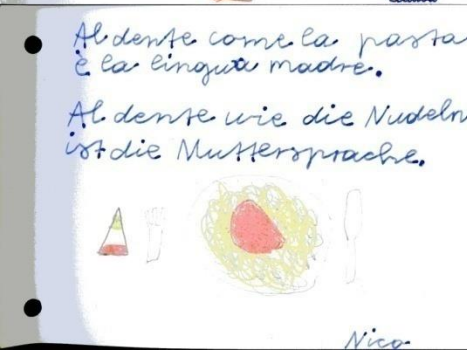 Al dente come la pasta
è la lingua madre.
Al dente wie die Nudeln
ist die Muttersprache.
Nico